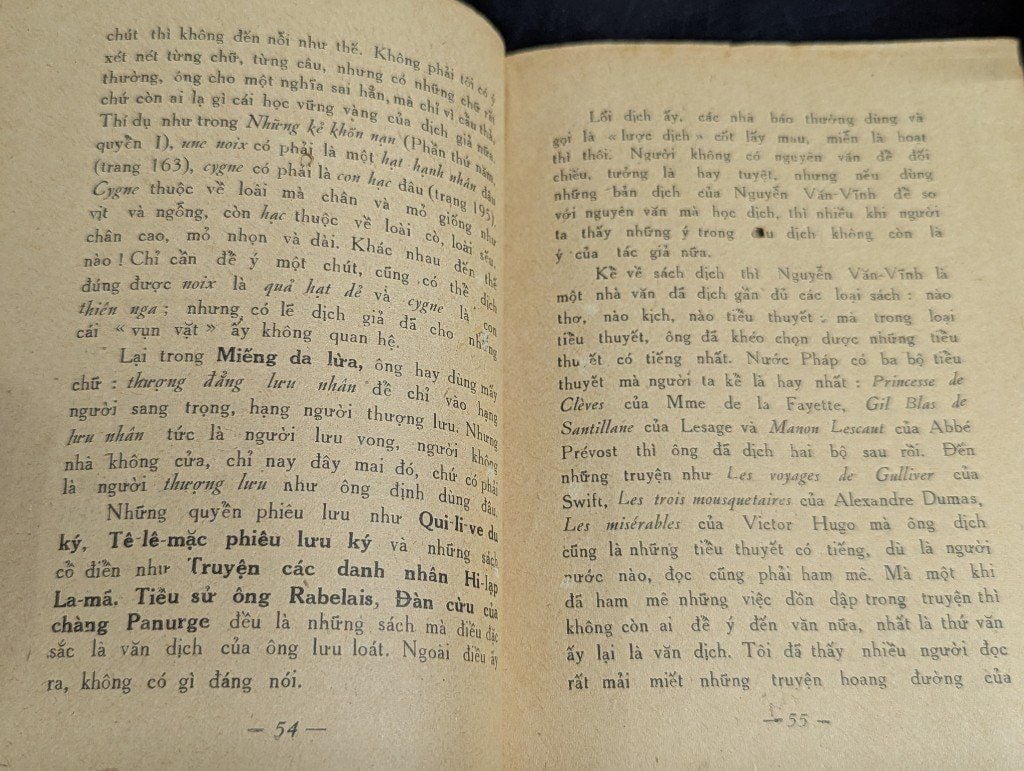 chút thì không đến nỗi như thế. Không phải tôi có ý
xét nét từng chữ, từng câu, nhưng có những chữ rất
thường, ông cho một nghĩa sai hẳn, mà chỉ vì cẩu thả,
chứ còn ai lạ gì cái học vững vàng của dịch giả nữa.
Thí dụ như trong Những kẻ khốn nạn (Phần thứ năm,
quyển I), une noix có phải là một hạt hạnh nhân đâu
(trang 163), cygne có phải là con hạc đâu (trang 195).
Cygne thuộc về loài mà chân và mỏ giống như
vịt và ngỗng, còn hạc thuộc về loài cò, loài sếu,
chân cao, mỏ nhọn và dài. Khác nhau đến thế
nào ! Chỉ cần để ý một chút, cũng có thể dịch
đúng được noix là quả hạt dẻ và cygne là con
thiên nga ; nhưng có lẽ dịch giả đã cho những
cái « vụn vặt » ấy không quan hệ.
Lại trong Miếng da lừa, ông hay dùng mấy
chữ : thượng đẳng lưu nhân để chỉ vào hạng
người sang trọng, hạng người thượng lưu. Nhưng
lưu nhân tức là người lưu vong, người không
nhà không cửa, chỉ nay đây mai đó, chứ có phải
là người thượng lưu như ông định dùng đâu.
Những quyển phiêu lưu như Qui-li-ve du
ký, Tê-lê-mặc phiêu lưu ký và những sách
cổ điển như Truyện các danh nhân Hi-lạp
La-mã. Tiểu sử ông Rabelais, Đàn cừu của
chàng Panurge đều là những sách mà điều đặc
sắc là văn dịch của ông lưu loát. Ngoài điều ấy
ra, không có gì đáng nói.
— 54 —
Lối dịch ấy, các nhà báo thường dùng và
gọi là « lược dịch » cốt lấy mau, miễn là hoạt
thì thôi. Người không có nguyên văn để đối
chiếu, tưởng là hay tuyệt, nhưng nếu dùng
những bản dịch của Nguyễn Văn-Vĩnh để so
với nguyên văn mà học dịch, thì nhiều khi người
ta thấy những ý trong dịch không còn là
ý của tác giả nữa.
Kể về sách dịch thì Nguyễn Văn-Vĩnh là
một nhà văn đã dịch gần đủ các loại sách : nào
thơ, nào kịch, nào tiểu thuyết : mà trong loại
tiểu thuyết, ông đã khéo chọn được những tiểu
thu ết có tiếng nhất. Nước Pháp có ba bộ tiểu
thuyết mà người ta kể là hay nhất : Princesse de
Clèves của Mme de la Fayette, Gil Blas de
Santillane của Lesage và Manon Lescaut của Abbé
Prévost thì ông đã dịch hai bộ sau rồi. Đến
những truyện như Les voyages de Gulliver của
Swift, Les trois mousquetaires của Alexandre Dumas,
Les misérables của Victor Hugo mà ông dịch
cũng là những tiểu thuyết có tiếng, dù là người
nước nào, đọc cũng phải ham mê. Mà một khi
đã ham mê những việc dồn dập trong truyện thì
không còn ai để ý đến văn nữa, nhất là thứ văn
ấy lại là văn dịch. Tôi đã thấy nhiều người đọc
rất mải miết những truyện hoang đường của
— 55 —